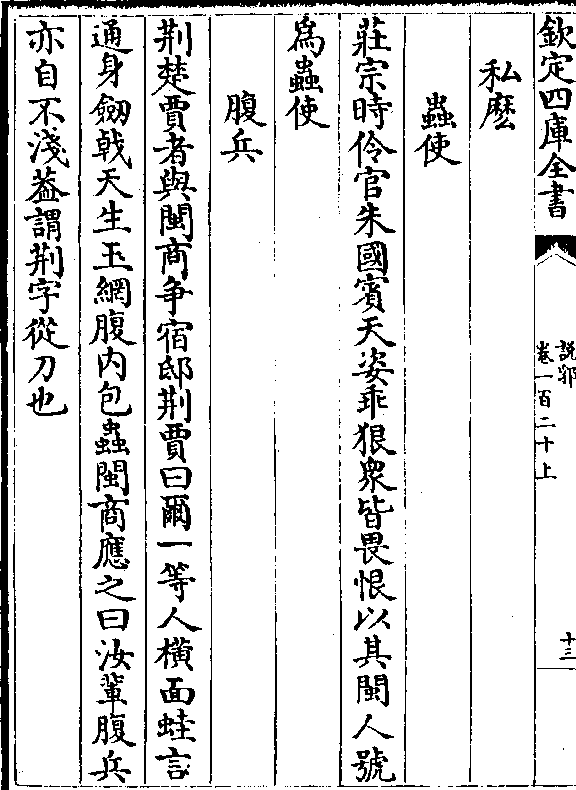 欽定四庫全書
説郛
卷一百二十上
十三
私麽
蟲使
莊宗時伶官朱國賓天姿乖狠衆皆畏恨以其閩人號
爲蟲使
腹兵
荆楚賈者與閩商争宿邸荆賈曰爾一等人横面蛙言
通身劒戟天生玉網腹内包蟲閩商應之曰汝輩腹兵
亦自不淺葢謂荆字從刀也